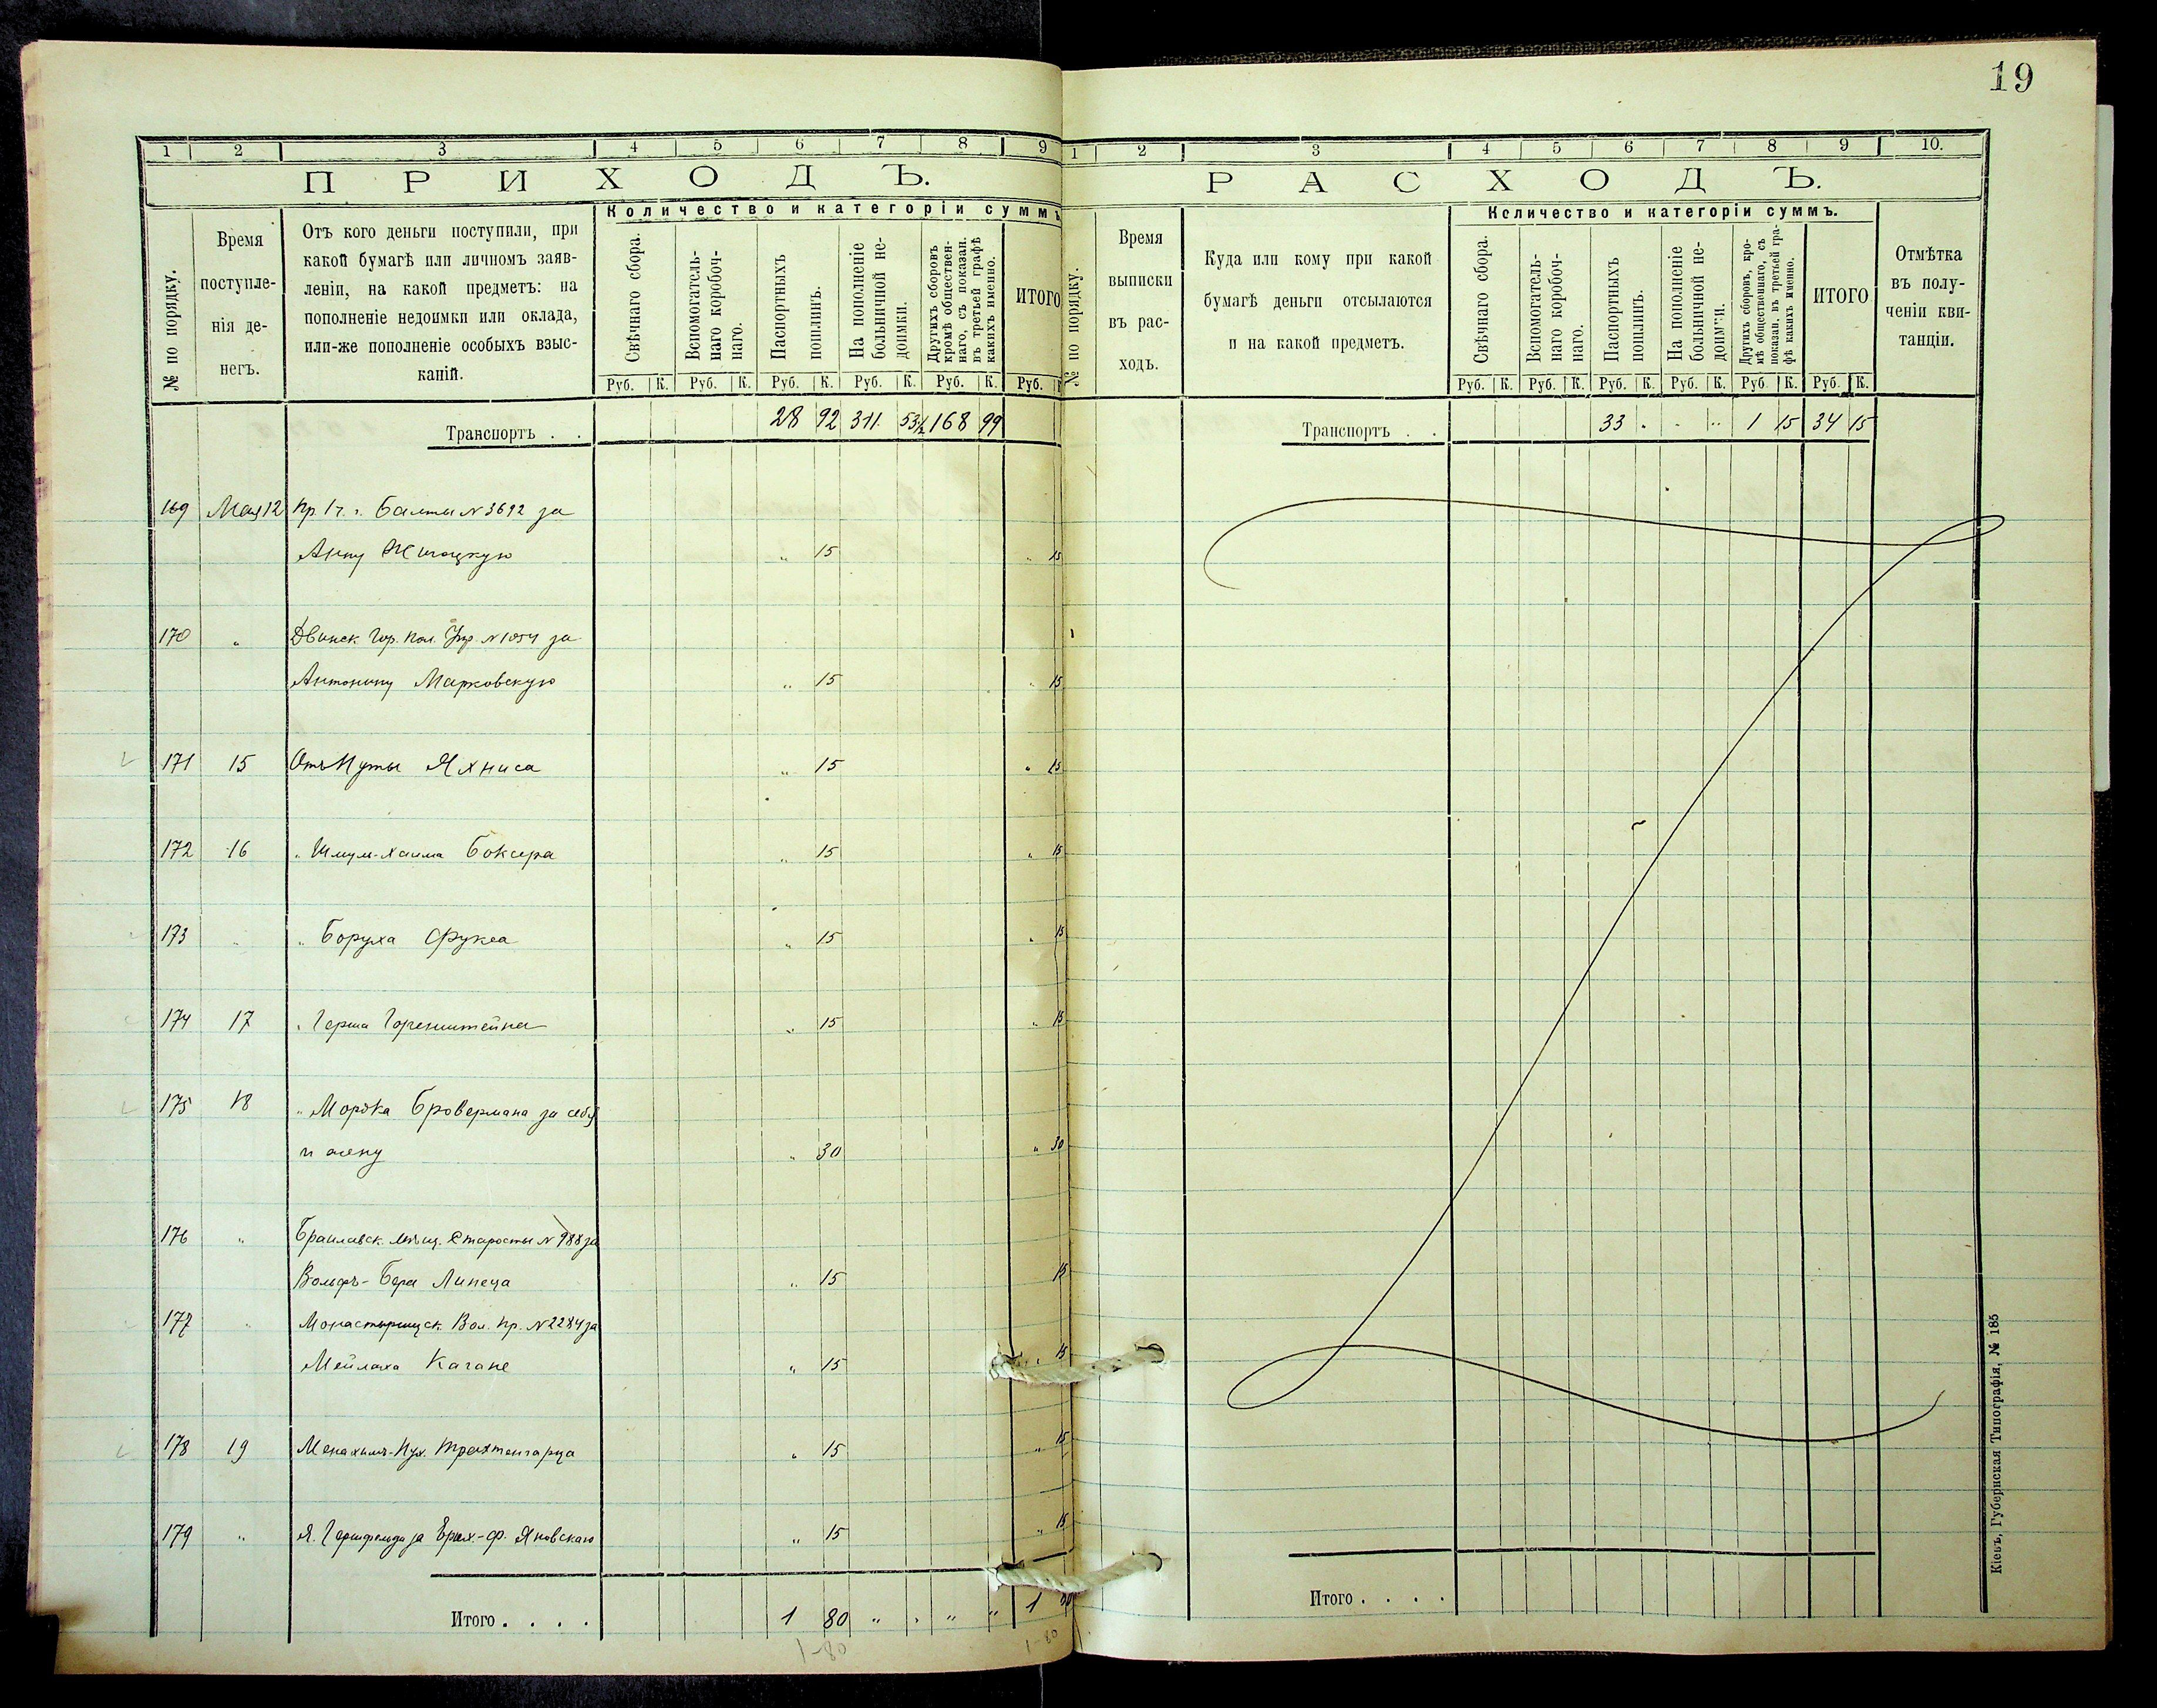 19
1 2 3 4 5 6 7 8 9
ПРИХОДЪ.
Количество и категоріи суммъ
№ по порядку.
Время
поступле-
нія де-
негъ.
Отъ кого деньги поступили, при
какой бумагѣ или личномъ заяв-
леніи, на какой предметъ: на
пополненіе недоимки или оклада,
или-же пополненіе особыхъ взыс-
каній.
Свѣчнаго сбора.
Вспомогатель-
наго коробоч-
наго.
Паспортныхъ
пошлинъ.
На пополненіе
больничной не-
доимки.
Другихъ сборовъ
кромѣ обществен-
наго, съ показан.
въ третьей графѣ
какихъ именно.
ИТОГО
Руб. К. Руб. К. Руб. К. Руб. К. Руб. К. Руб.
Транспортъ . . 28 92 311 53½ 168 99
169 Мая 12 Пр. 1 ч. г. Балты N 3692 за
Анну " 15 " 15
170 " Двинск. Гор. Пол. Упр. N 1054 за
Антонину Марковскую " 15 " 15
171 15 Отъ Нуты Яхниса " 15 " 15
172 16 " Шмуль-Хаима Боксера " 15 " 15
173 " " Боруха Фукса " 15 " 15
174 17 " Герша Горенштейна " 15 " 15
175 18 " Мордка Бровермана за себя
и жену " 30 " 30
176 " Браилавск. мѣщ. Старосты N 988 за
Вольфъ-Бера Липеца " 15 15
177 " Монастырищск. Вол. Пр. N 2284 за
Мейлаха Кагане " 15 " 15
178 19 Менахимъ-Нух. Трахтенгарца " 15 " 15
179 " Я. Гершфельда за Ф. Яновскаго " 15 " 15
Итого . . . . 1 80 " " " " 1 80
1-80 1-80
1 2 3 4 5 6 7 8 9 10.
РАСХОДЪ.
Количество и категоріи суммъ.
№ по порядку.
Время
выписки
въ рас-
ходъ.
Куда или кому при какой
бумагѣ деньги отсылаются
и на какой предметъ.
Свѣчнаго сбора.
Вспомогатель-
наго коробоч-
наго.
Паспортныхъ
пошлинъ.
На пополненіе
больничной не-
доимки.
Другихъ сборовъ, кро-
мѣ общественнаго, съ
показан. въ третьей гра-
фѣ какихъ именно.
ИТОГО
Отмѣтка
въ полу-
ченіи кви-
танціи.
Руб. К. Руб. К. Руб. К. Руб. К. Руб. К. Руб. К.
Транспортъ . . 33 . . " 1 15 34 15
Итого . . . .
Кіевъ, Губернская Типографія, № 185